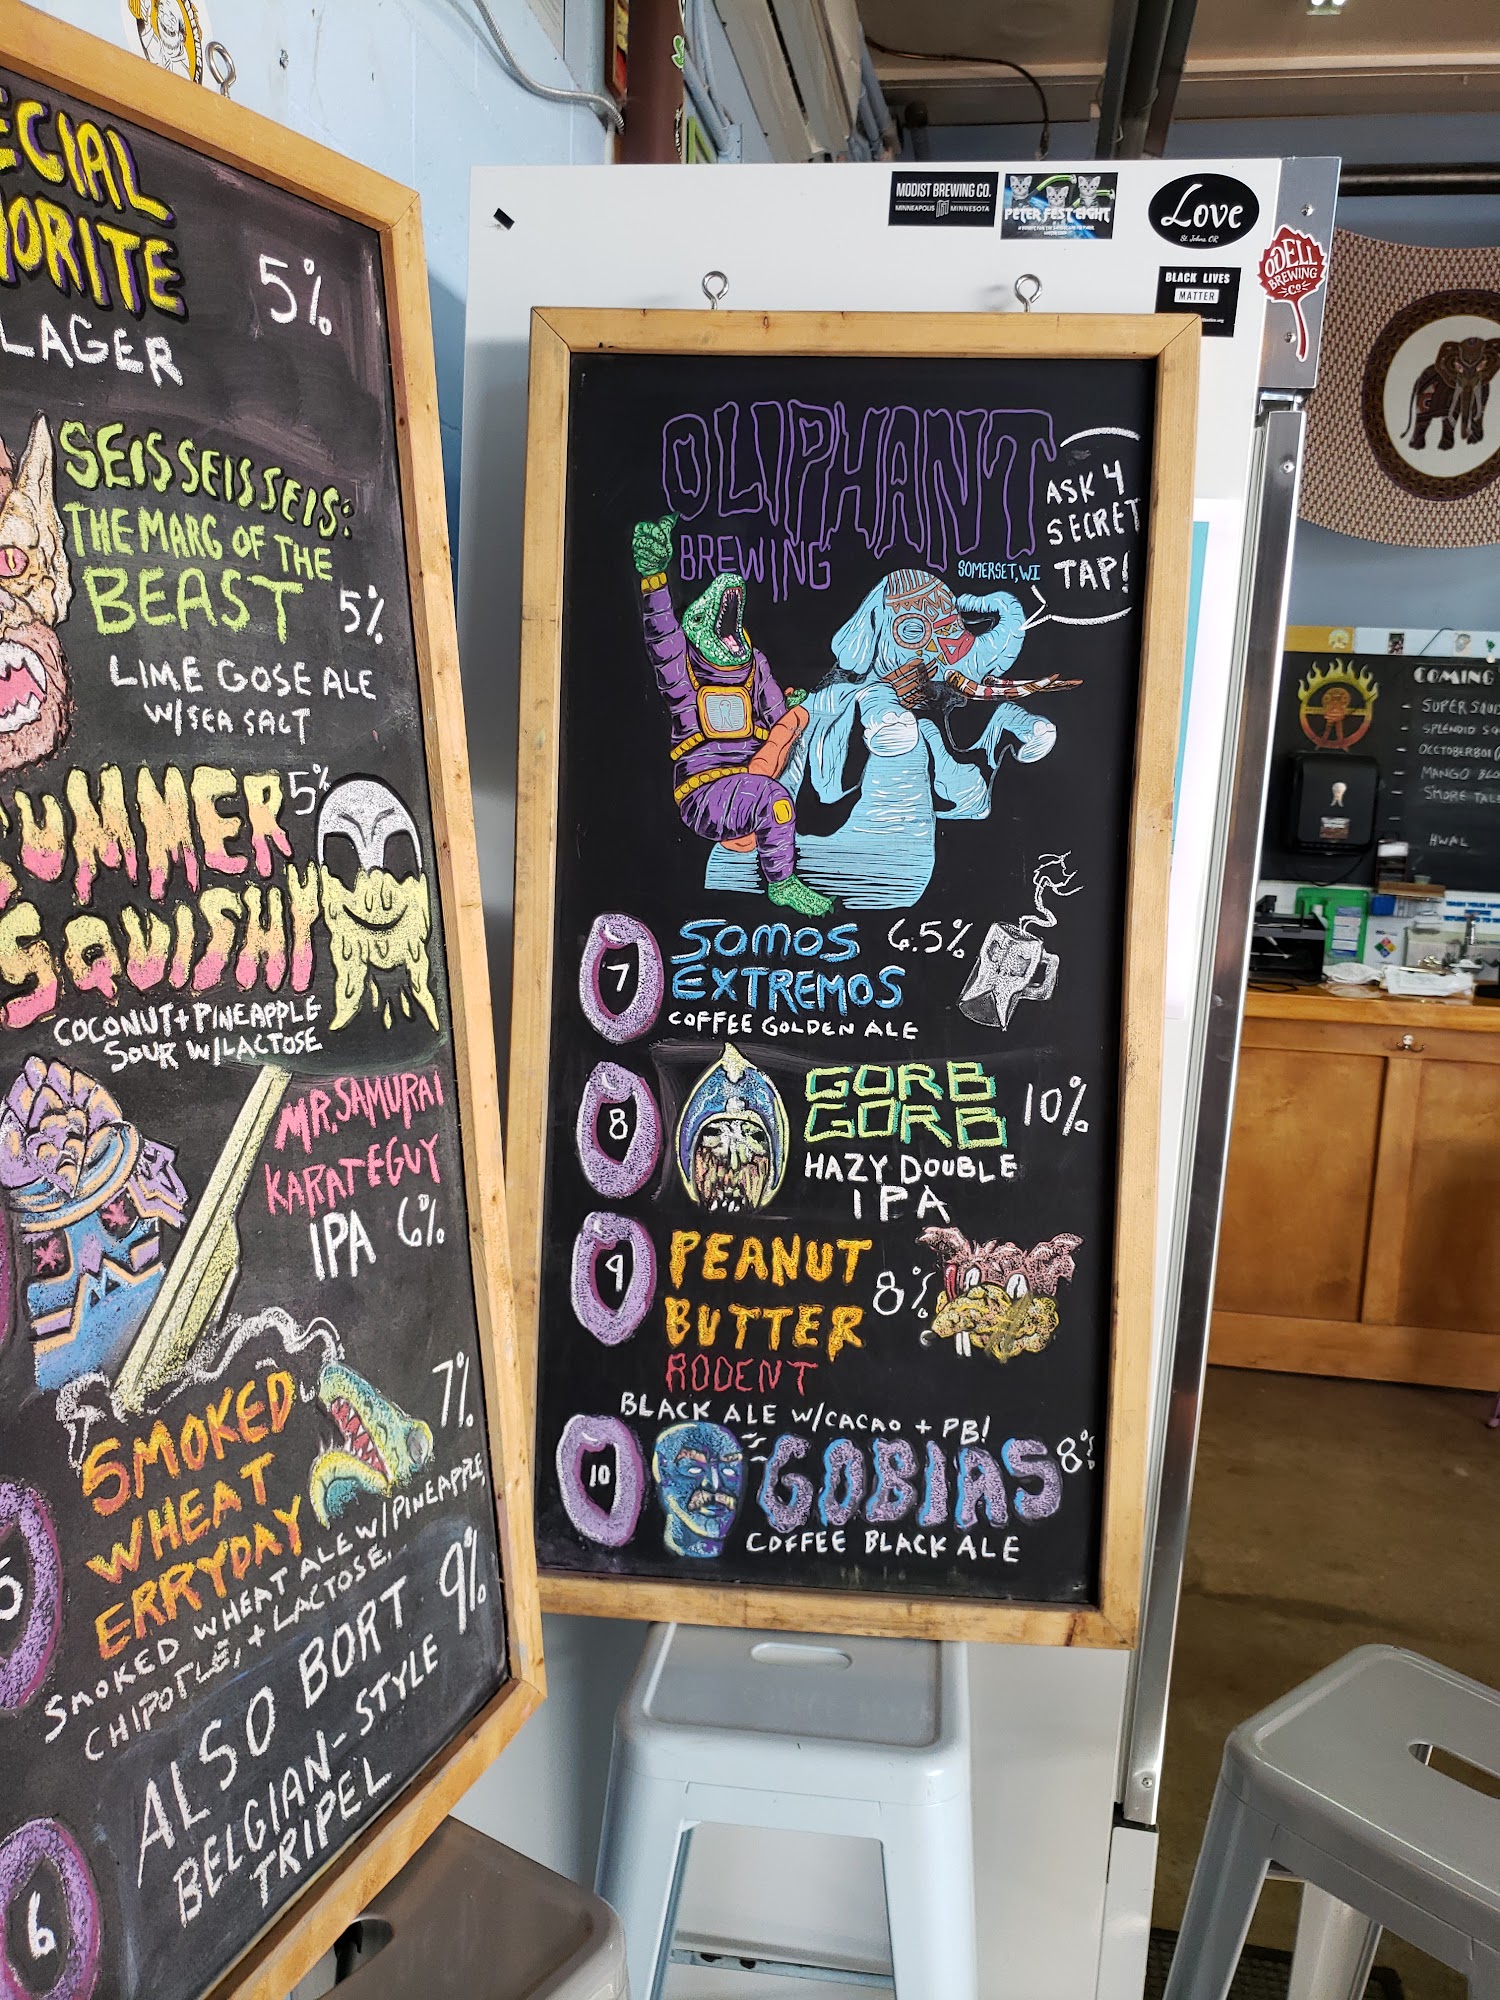 LAGER
5%
SEISSEISSEIS:
THE MARG OF THE
BEAST
5%
LIME GOSE ALE
W/SEA SALT
SUMMER
5%
SQUISHY
COCONUT+PINEAPPLE
SOUR W/LACTOSE
MR. SAMURAI
KARATE GUY
IPA 6%
5
SMOKED
WHEAT
ERRYDAY
7%
SMOKED WHEAT ALE W/PINEAPPLE,
CHIPOTLE, + LACTOSE.
6
ALSO BORT 9%
BELGIAN-STYLE
TRIPEL
OLIPHANT
BREWING
SOMERSET, WI
ASK 4
SECRET
TAP!
7
SOMOS
EXTREMOS
6.5%
COFFEE GOLDEN ALE
8
GORB
GORB
10%
HAZY DOUBLE
IPA
9
PEANUT
BUTTER
8%
RODENT
BLACK ALE W/CACAO + PB!
10
GOBIAS
8%
COFFEE BLACK ALE
MODIST BREWING CO.
MINNEAPOLIS MINNESOTA
PETER FEST EIGHT
Love
St. Johns, OR
BLACK LIVES
MATTER
ODELL
BREWING
CO
COMING
- OCCTOBERBOI
- MANGO
HWAL